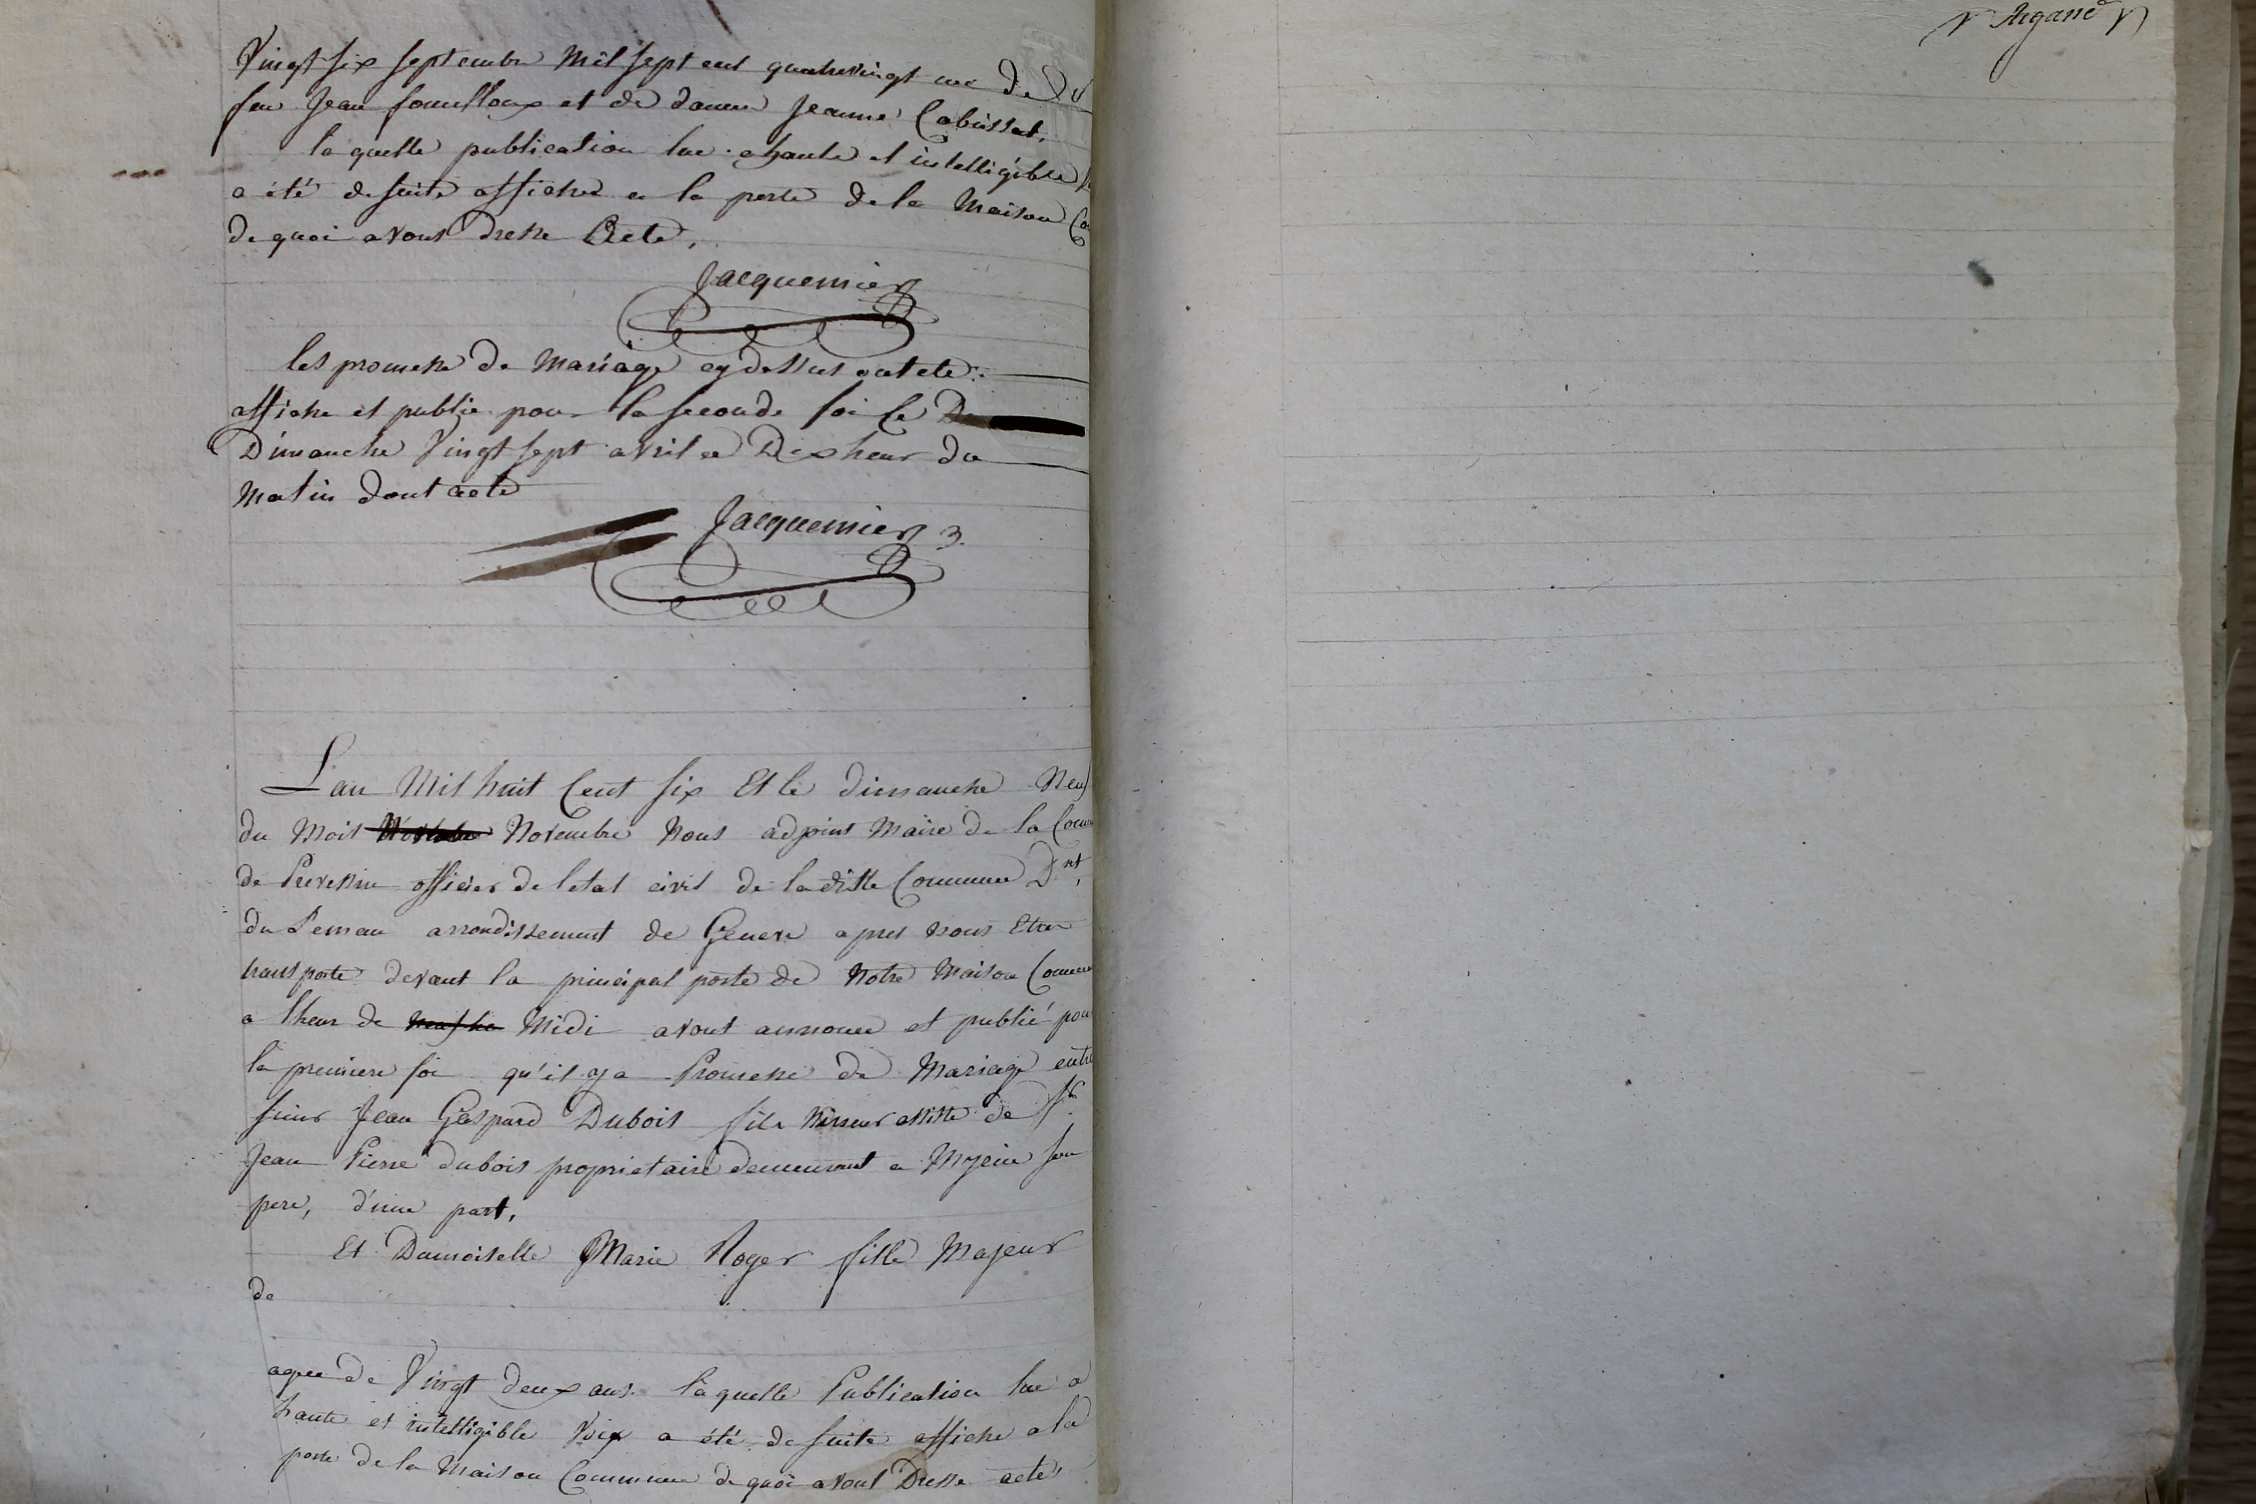 Vingt six septembre mil sept cent quatrevingt une de
feu Jean fouilloux et de dame Jeanne Cabussat,
la quelle publication lue a haute et intelligible
a été de suite affiche a la porte de la Maison Co
de quoi avons dresse Acte,
Jacquemier
les promesse de Mariage cy dessus ont ete
affiche et publie pour la seconde foi le
Dimanche Vingt sept avril a Dix heur du
matin dont acte
Jacquemier
L'an Mil huit Cent six Et le dimanche Neuf
du Mois Novembre Nous adjoint Maire de la Comm
de Prevessin officier de letat civil de la ditte Commune Dnt,
du Leman arrondissement de Geneve apres nous Etre
transporte devant la principal porte de Notre Maison Commune
a lheur de Midi avons annonce et publié pour
la premiere foi qu'il y a Promesse de Mariage entre
sieur Jean Gaspard Dubois fils Mineur assiste de Sr
Jean Pierre dubois proprietaire demeurant a son
pere, d'une part,
Et Damoiselle Marie Roger fille Majeur
de
agee de Vingt deux ans. laquelle Publication lue a
haute et intelligible Voix a été de suite affiche a la
porte de la Maison Commune de quoi avons Dresse acte